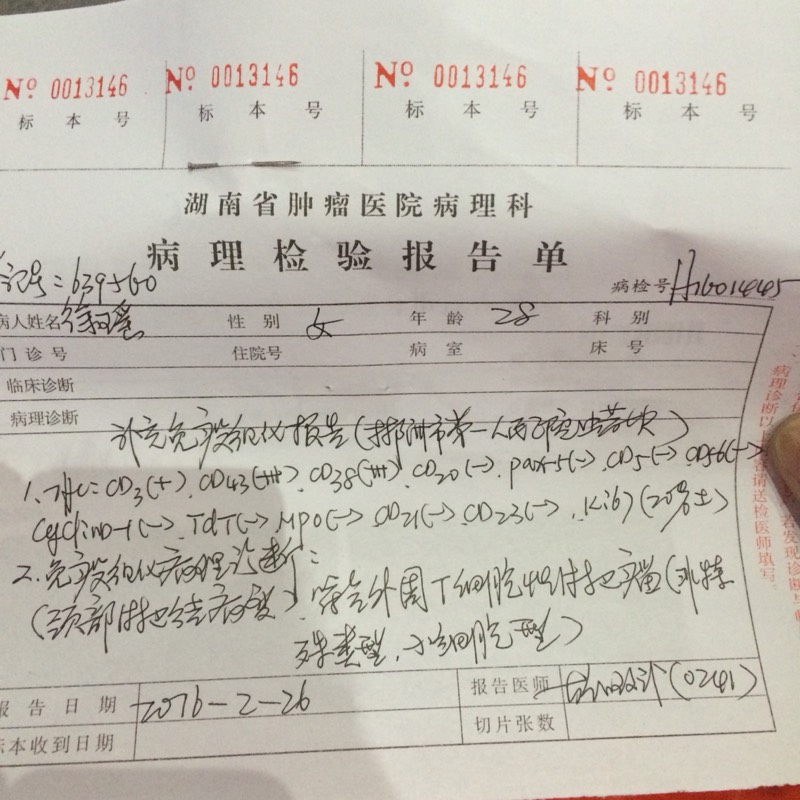 Nº 0013146 Nº 0013146 Nº 0013146 Nº 0013146
标本号 标本号 标本号 标本号
湖南省肿瘤医院病理科
病理检验报告单
记号：639560 病检号 H1601445
病人姓名 性别 女 年龄 28 科别
门诊号 住院号 病室 床号
临床诊断
病理诊断
补充免疫组化报告(郴州市第一人民医院蜡块)
1、IHC: CD3(+)、CD43(+++)、CD38(+++)、CD20(-)、pax-5(-)、CD5(-)、CD56(-)
CyclinD-1(-)、TdT(-)、MPO(-)、CD21(-)、CD23(-)、Ki67(20%±)
2、免疫组化病理诊断：
(颈部淋巴结病变) 符合外周T细胞性淋巴瘤(非特
殊类型，小细胞型)
报告日期 2016-2-26 报告医师 (0241)
标本收到日期 切片张数